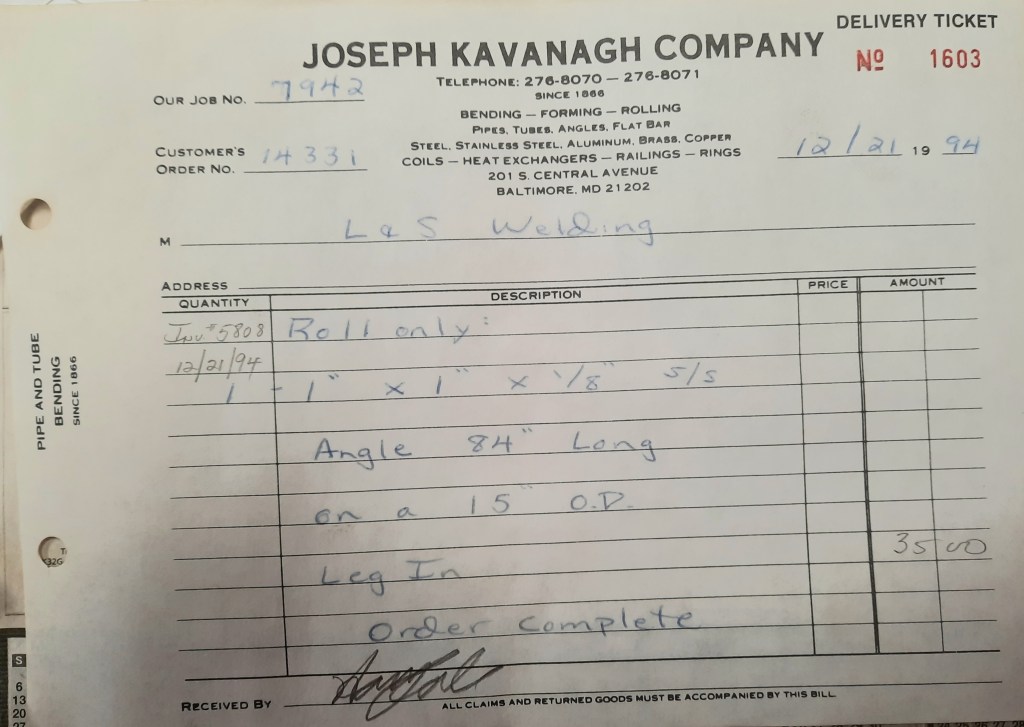 DELIVERY TICKET
JOSEPH KAVANAGH COMPANY
Nº 1603
TELEPHONE: 276-8070 — 276-8071
SINCE 1866
OUR JOB NO. 7942
BENDING — FORMING — ROLLING
PIPES, TUBES, ANGLES, FLAT BAR
STEEL, STAINLESS STEEL, ALUMINUM, BRASS, COPPER
CUSTOMER'S
ORDER NO. 14331
COILS — HEAT EXCHANGERS — RAILINGS — RINGS
12/21 19 94
201 S. CENTRAL AVENUE
BALTIMORE, MD 21202
M L & S Welding
ADDRESS
QUANTITY DESCRIPTION PRICE AMOUNT
Inv # 5808 Roll only:
12/21/94
1 - 1" x 1" x 1/8" S/S
Angle 84" Long
on a 15" O.D.
35 00
Leg In
Order Complete
RECEIVED BY
ALL CLAIMS AND RETURNED GOODS MUST BE ACCOMPANIED BY THIS BILL
PIPE AND TUBE
BENDING
SINCE 1866
S
6
13
20
27